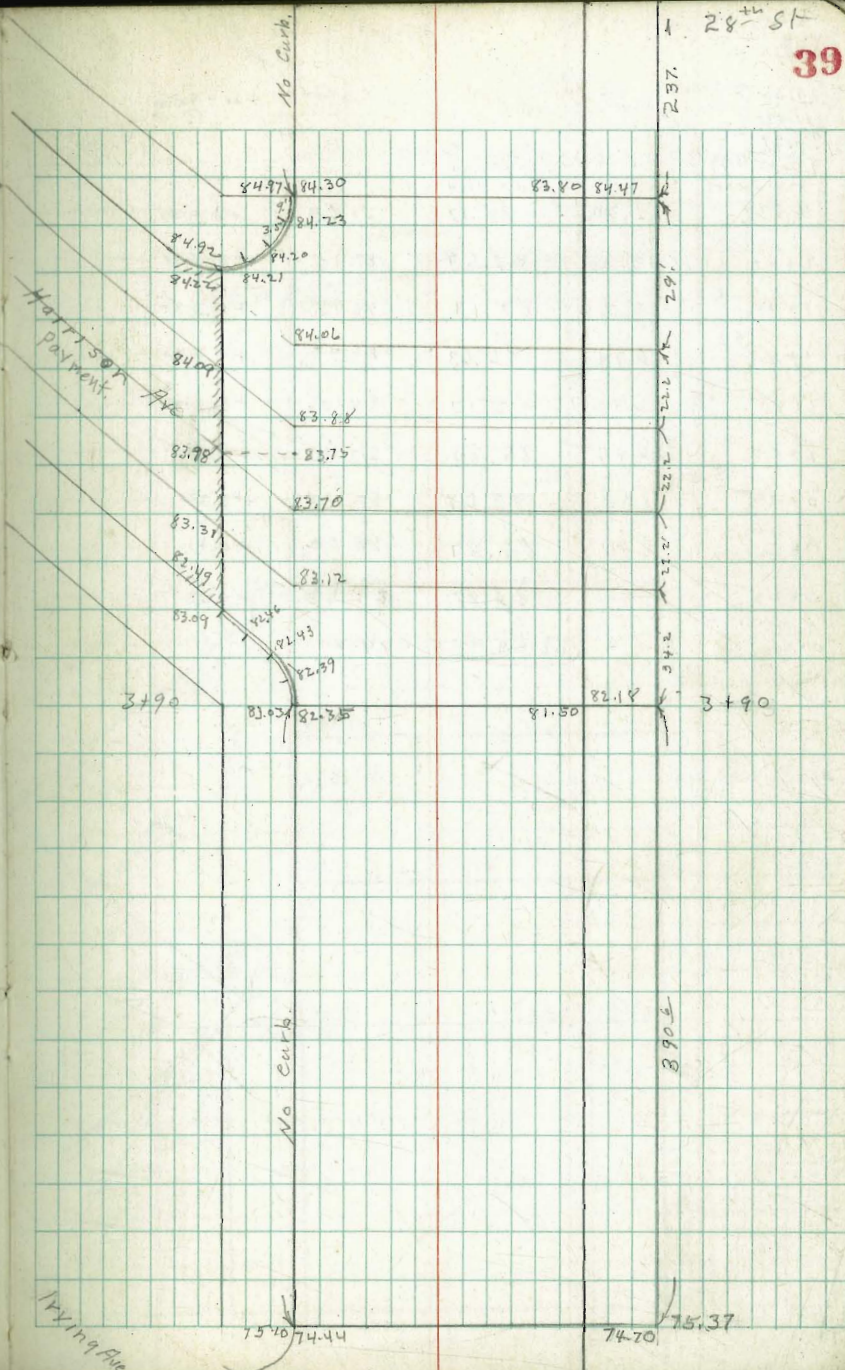 28th St
39
No Curb.
237.
84.97 84.30 83.80 84.47
84.23
84.92 84.20
84.22 84.21
29.
Harrison Ave
Payment.
84.06
84.09
22.2
83.88
83.98 83.75
22.2
83.70
83.31
22.2
82.49 83.12
83.09 82.46
82.43
82.39
34.2
3+90 82.35 81.50 82.18 3+90
No Curb.
390.6
Irving Ave
75.10 74.44 74.70 75.37